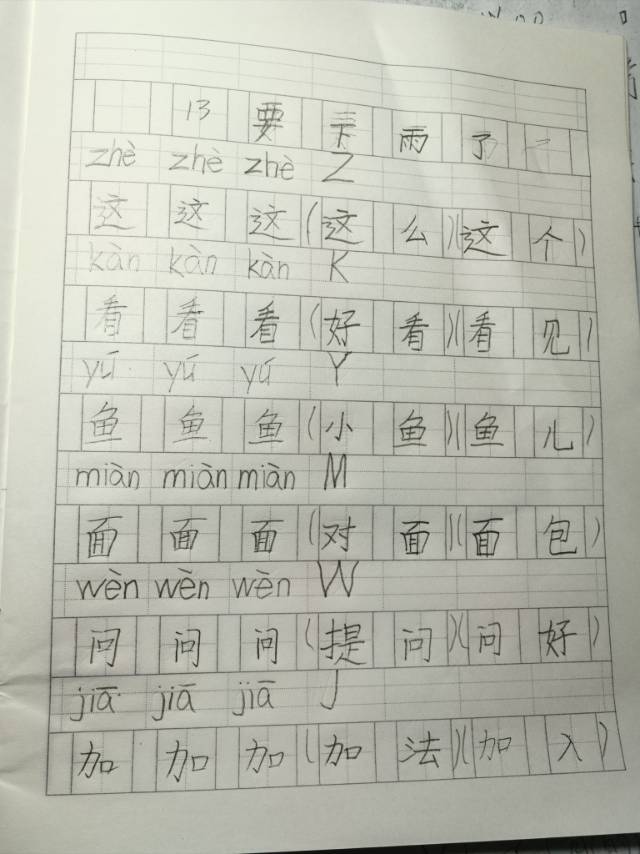 13 要下雨了
zhè zhè zhè Z
这 这 这 (这么)(这个)
kàn kàn kàn K
看 看 看 (好看)(看见)
yú yú yú Y
鱼 鱼 鱼 (小鱼)(鱼儿)
miàn miàn miàn M
面 面 面 (对面)(面包)
wèn wèn wèn W
问 问 问 (提问)(问好)
jiā jiā jiā J
加 加 加 (加法)(加入)